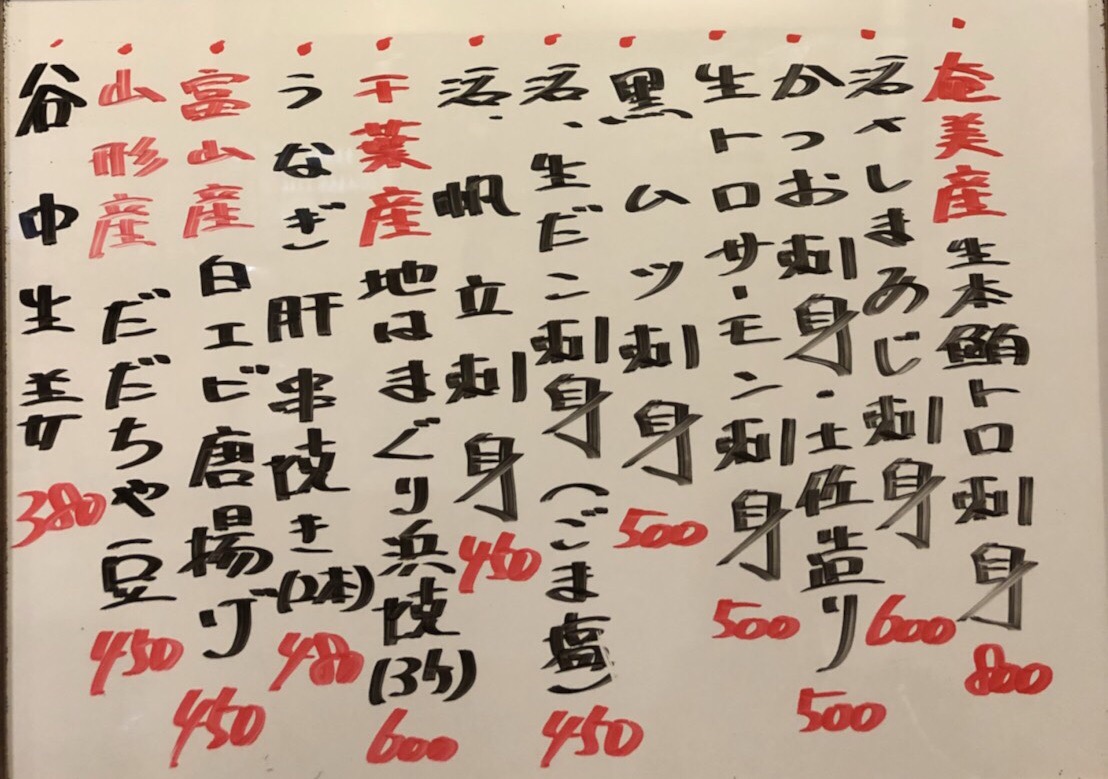 ・奄美産生本鮪トロ刺身 800
活〆しまあじ刺身 600
・かつお刺身・土佐造り 500
・生トロサーモン刺身 500
・黒ムツ刺身 500
・活、生だこ刺身(ごま塩) 450
・活、帆立刺身 450
・千葉産地はまぐり浜焼(3ケ) 600
・うなぎ肝串焼き(2本) 480
・富山産白エビ唐揚げ 450
・山形産だだちゃ豆 450
・谷中生姜 380